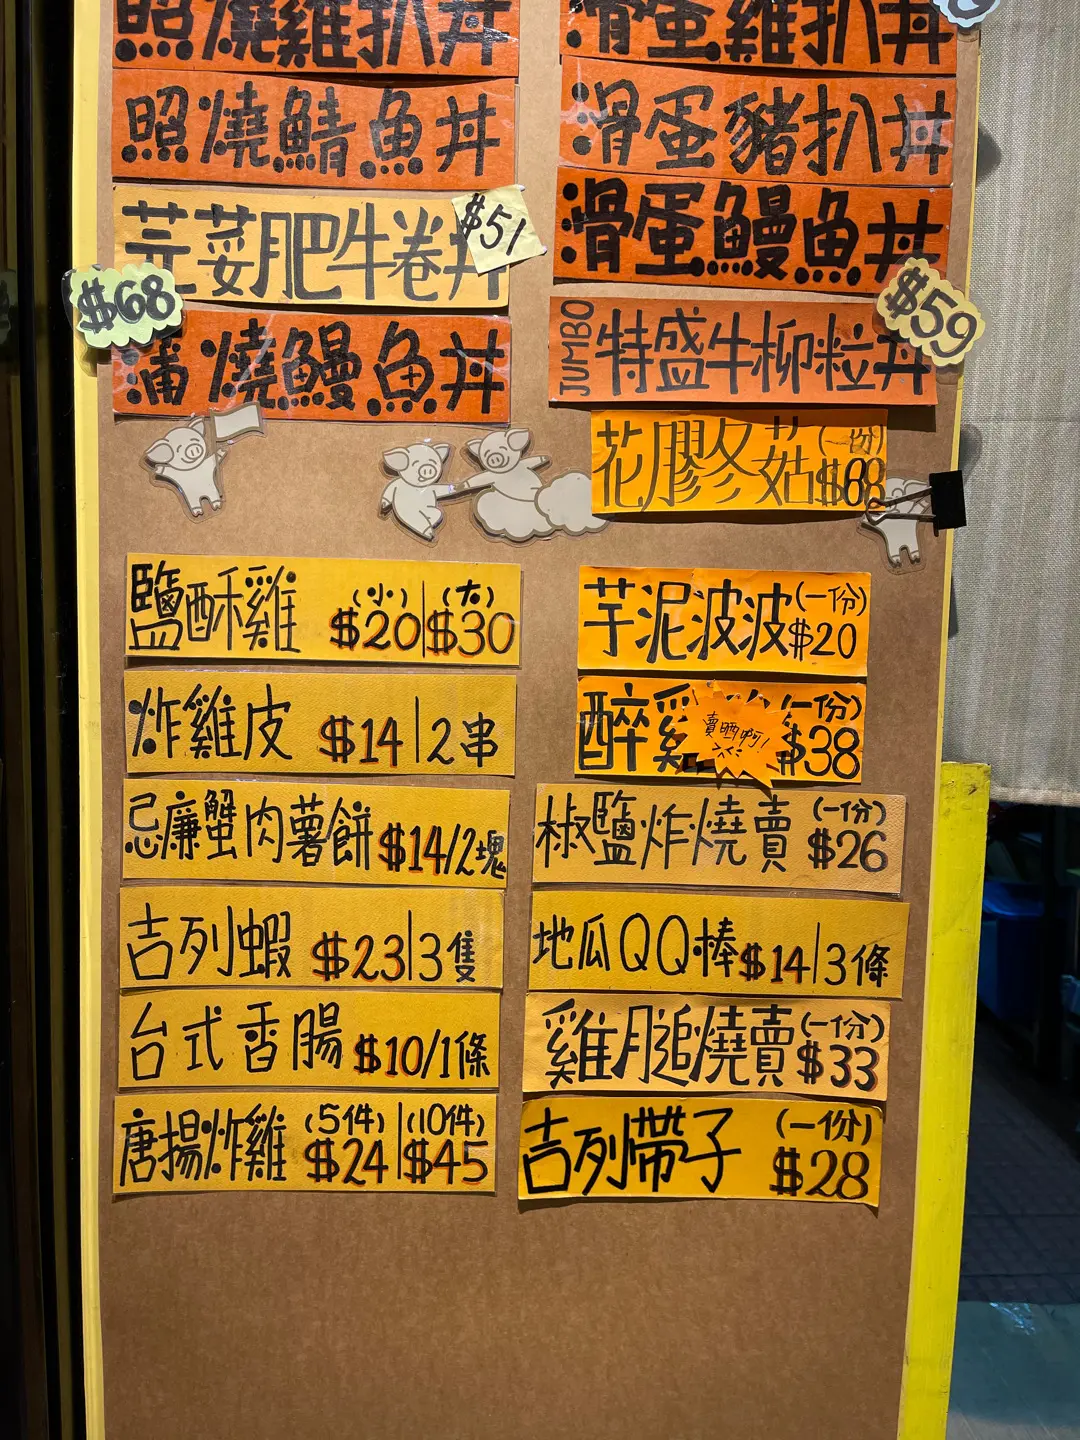 照燒雞扒丼
照燒鯖魚丼
芫荽肥牛卷丼
$51
$68
蒲燒鰻魚丼
滑蛋雞扒丼
滑蛋豬扒丼
滑蛋鰻魚丼
JUMBO 特盛牛柳粒丼
$59
花膠冬菇(一份) $68
鹽酥雞 (小) $20 | (大) $30
炸雞皮 $14 | 2串
忌廉蟹肉薯餅 $14/2塊
吉列蝦 $23 | 3隻
台式香腸 $10/1條
唐揚炸雞 (5件) $24 | (10件) $45
芋泥波波(一份) $20
醉雞 (一份) $38
賣晒啊!
椒鹽炸燒賣 (一份) $26
地瓜QQ棒 $14 | 3條
雞膇燒賣(一份) $33
吉列帶子 (一份) $28